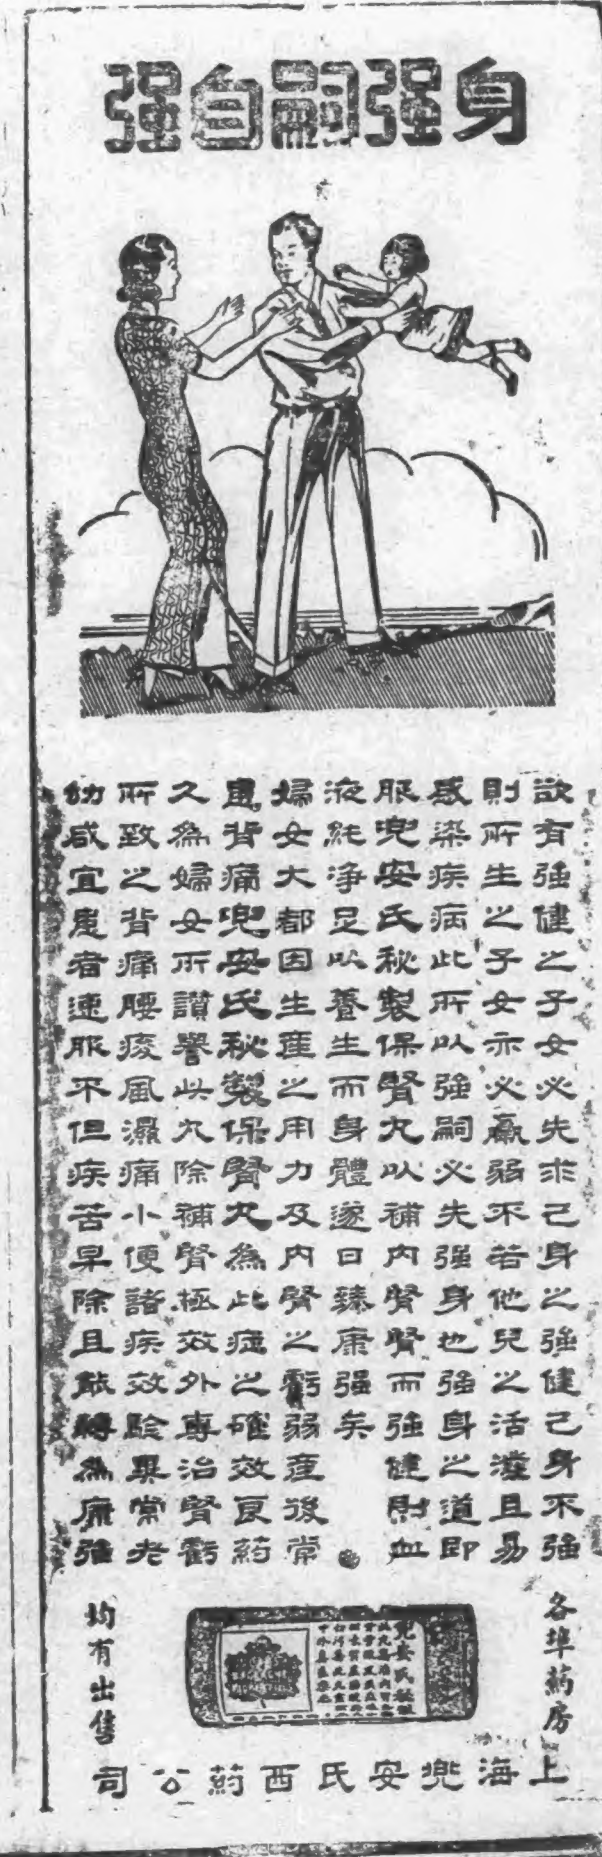 身强嗣自强
欲有强健之子女必先求己身之强健己身不强
則所生之子女亦必羸弱不若他兒之活潑且易
感染疾病此所以强嗣必先强身也强身之道即
服兜安氏秘製保腎丸以補內腎腎而强健則血
液純净足以養生而身體遂日臻康强矣
婦女大都因生產之用力及內腎之虧弱產後常
患背痛兜安氏秘製保腎丸為此症之確效良葯
久為婦女所讚譽此丸除補腎極效外專治腎虧
所致之背痛腰痠風濕痛小便諸疾效驗異常老
幼咸宜患者速服不但疾苦早除且能轉為康强
各埠葯房
均有出售
兜安氏秘製
上海兜安氏西葯公司